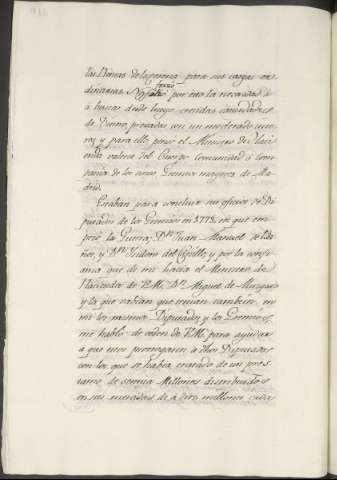 las Rentas de la Corona para sus cargas or
dinarias. forzó por esto la necesidad
á buscar desde luego crecidas cantidades
de Dinero, prestadas con un moderado inte
res; y para ello pensó el Ministro de Haci
enda valerse del Cuerpo, Comunidad ó Com
pañia de los cinco Gremios mayores de Ma
drid.
Estaban para concluir sus oficios de Di
putados de los Gremios en 1779, en que em
pezó la Guerra, Dn. Juan Manuel de
y Dn. Isidoro del Castillo, y por la confi
anza que de mi hacía el Ministro de
Hacienda de V.M. Dn. Miguel de Muzquiz
y la que sabían que tenían tambien en
mi los mismos Diputados y los Gremios,
me habló de orden de V.M. para ayudar
á que estos prorrogasen á dhos Diputados
con los que se había tratado de un pres
tamo de sesenta Millones distribuidos
en seis mesadas de á diez millones cada